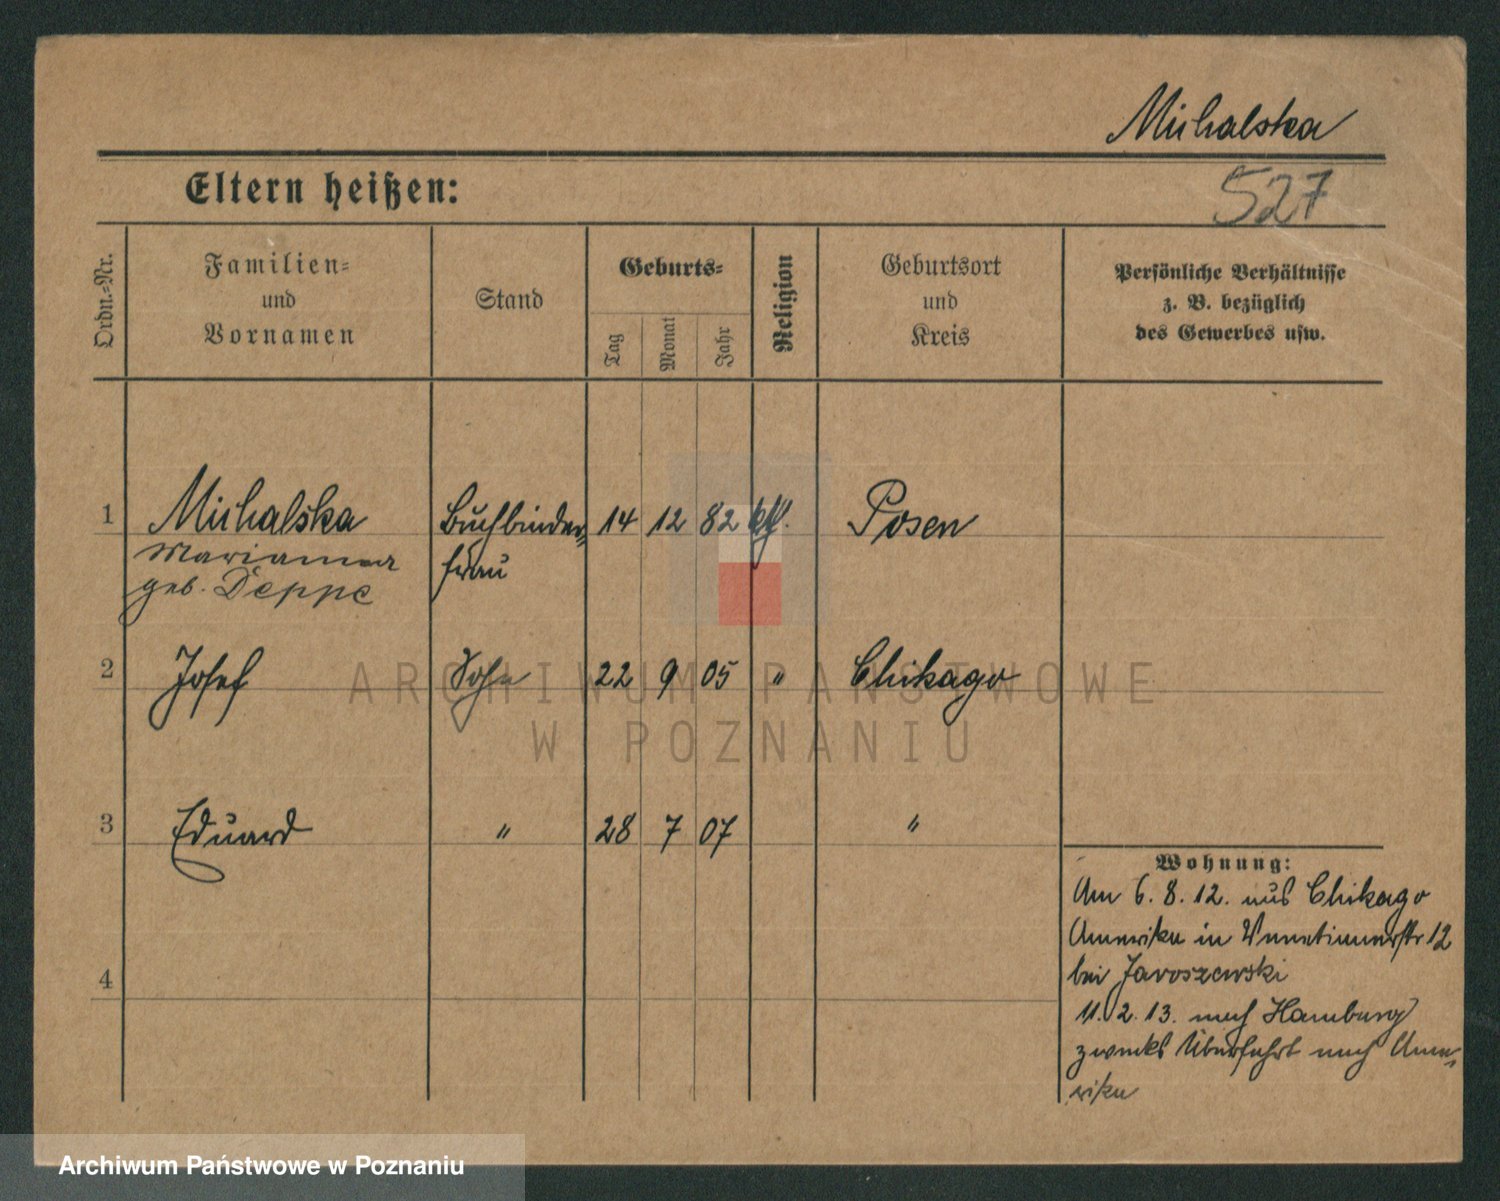 Michalska
527
Eltern heißen:
Ordn.-Nr.
Familien-
und
Vornamen
Stand
Geburts-
Tag
Monat
Jahr
Religion
Geburtsort
und
Kreis
Persönliche Verhältnisse
z. B. bezüglich
des Gewerbes usw.
1 Michalska Buchbinder- 14 12 82 kth. Posen
Marianna frau
geb. Deppe
2 Josef Sohn 22 9 05 " Chikago
3 Eduard " 28 7 07 "
4
Wohnung:
Am 6. 8. 12. aus Chikago
Amerika in Venetianerstr 12
bei Jaroszewski
11. 2. 13. nach Hamburg
zwecks Überfahrt nach Ame-
rika
ARCHIWUM PAŃSTWOWE
W POZNANIU
Archiwum Państwowe w Poznaniu